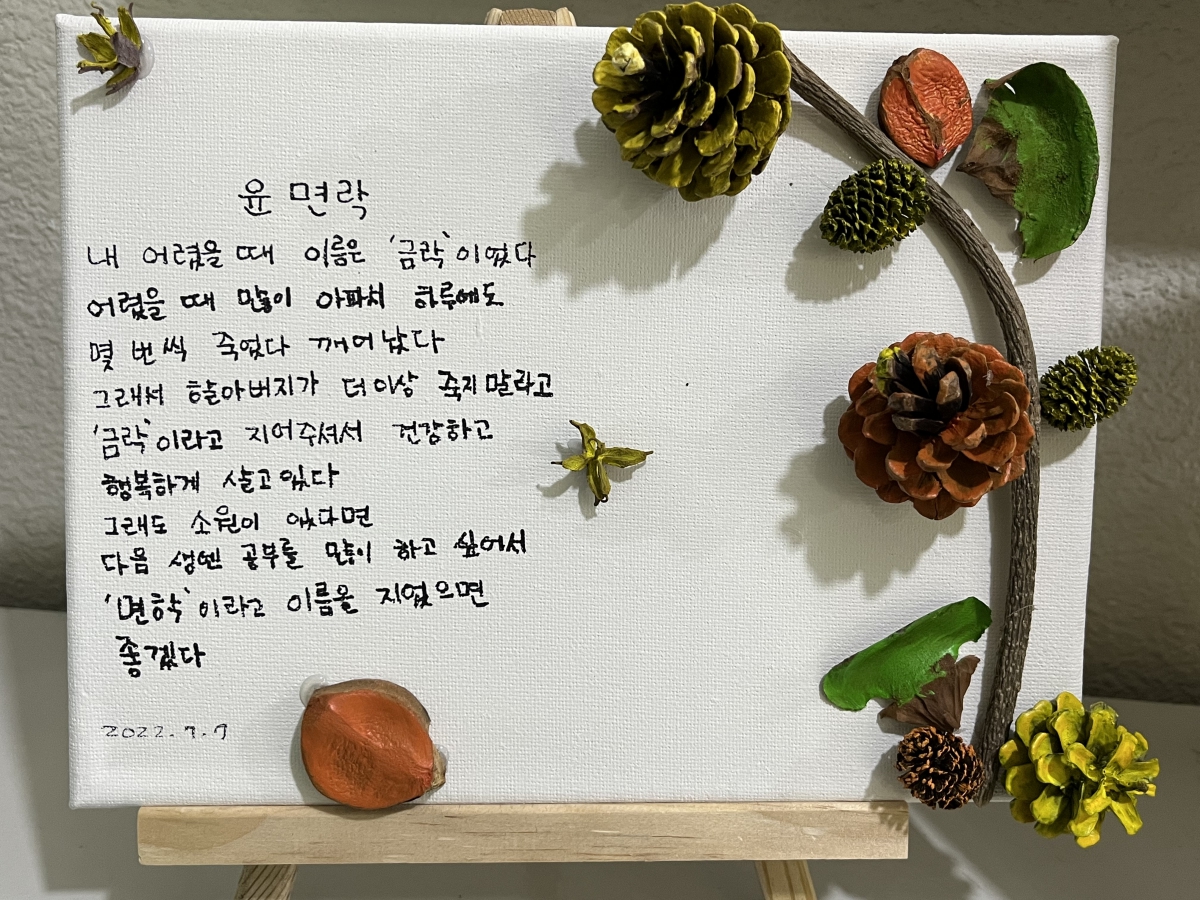 윤면락
내 어렸을 때 이름은 '금락'이었다
어렸을 때 많이 아파서 하루에도
몇 번씩 죽었다 깨어났다
그래서 할아버지가 더이상 죽지말라고
'금락'이라고 지어주셔서 건강하고
행복하게 살고있다
그래도 소원이 있다면
다음 생엔 공부를 많이 하고 싶어서
'면학'이라고 이름을 지었으면
좋겠다
2022.7.7